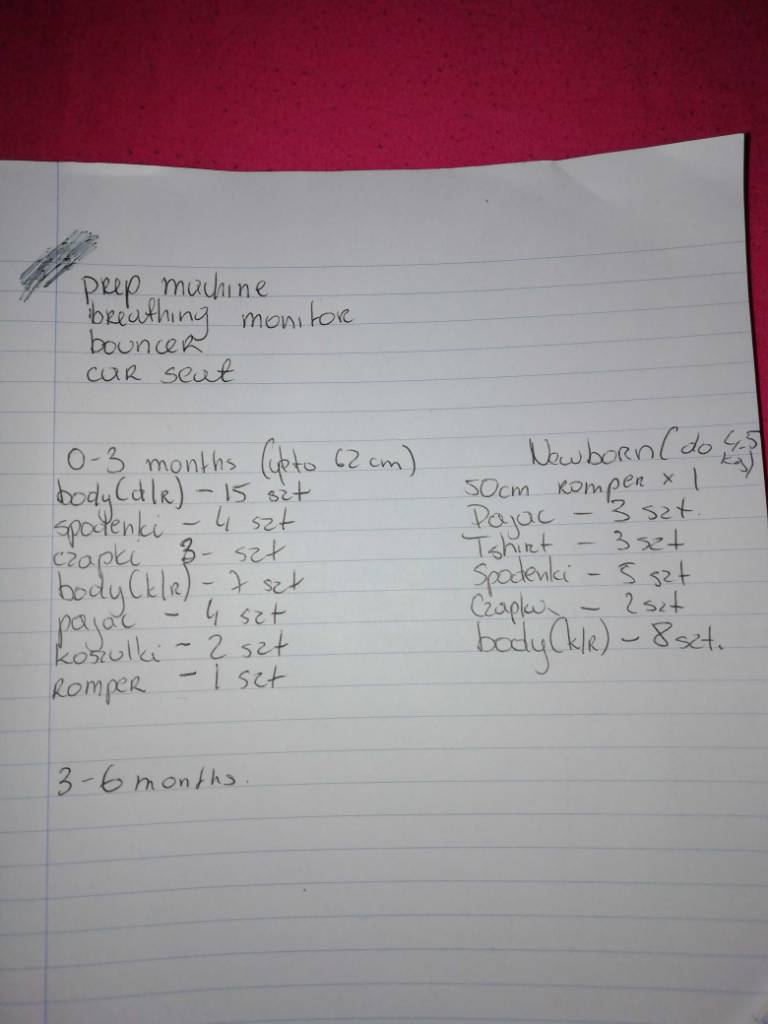 prep machine
breathing monitor
bouncer
car seat
0-3 months (upto 62 cm)
body(d/R) - 15 szt
spodenki - 4 szt
czapki 3- szt
body(k/R) - 7 szt
pajac - 4 szt
koszulki - 2 szt
Romper - 1 szt
Newborn (do 4,5 kg)
50cm romper x 1
Pajac - 3 szt.
Tshirt - 3 szt
Spodenki - 5 szt
Czapki - 2 szt
body(k/R) - 8 szt.
3-6 months.